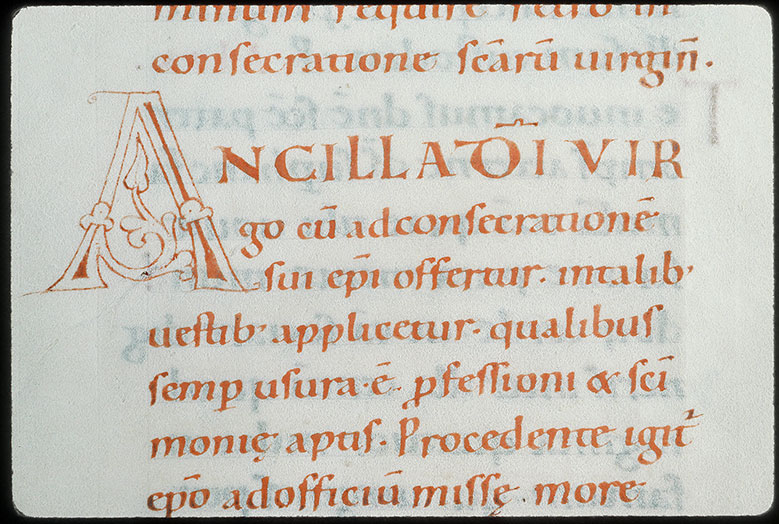 consecratione scārū uirgin̄.
ANCILLA DĪ VIR
go cū ad consecrationē
sui ep̄i offertur. in talib;
uestib; applicetur. qualibus
semp̲ usura·ē. ꝓfessioni & sc̄i
monię aptis. Procedente igit᷑
ep̄o ad officiū missę more